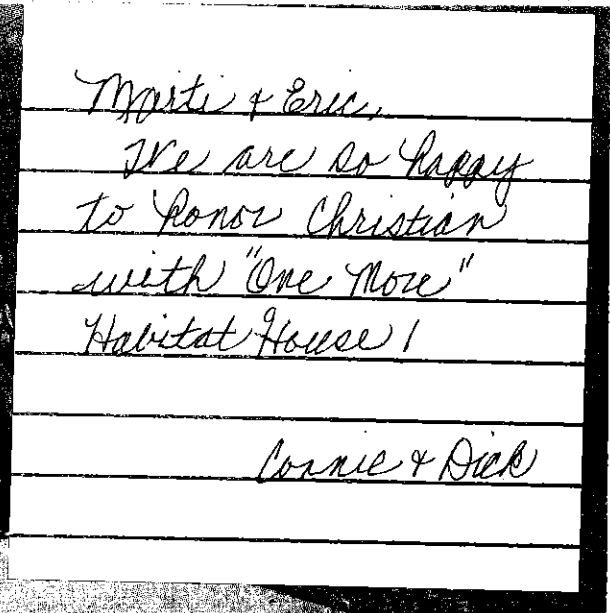 Marti & Eric,
We are so happy
to honor Christian
with "One More"
Habitat House!
Connie & Dick